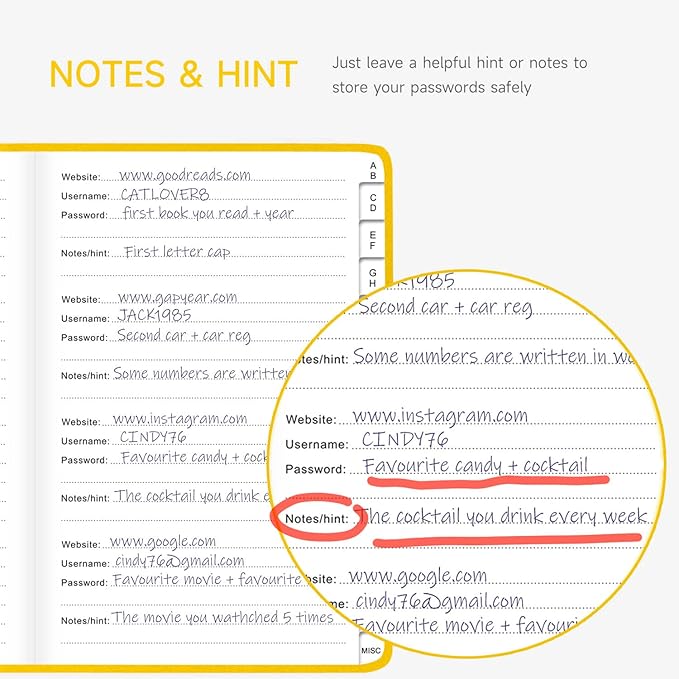 NOTES & HINT
Just leave a helpful hint or notes to
store your passwords safely
Website: www.goodreads.com
Username: CATLOVER8
Password: first book you read + year
Notes/hint: First letter cap
Website: www.gapyear.com
Username: JACK1985
Password: Second car + car reg
Notes/hint: Some numbers are written
Website: www.instagram.com
Username: CINDY76
Password: Favourite candy + cock
Notes/hint: The cocktail you drink e
Website: www.google.com
Username: cindy76@gmail.com
Password: Favourite movie + favourite
Notes/hint: The movie you wathched 5 times
A
B
C
D
E
F
G
H
MISC
1985
Second car + car reg
tes/hint: Some numbers are written in wo
Website: www.instagram.com
Username: CINDY76
Password: Favourite candy + cocktail
Notes/hint: The cocktail you drink every week
site: www.google.com
me: cindy76@gmail.com
Favourite movie + favouri